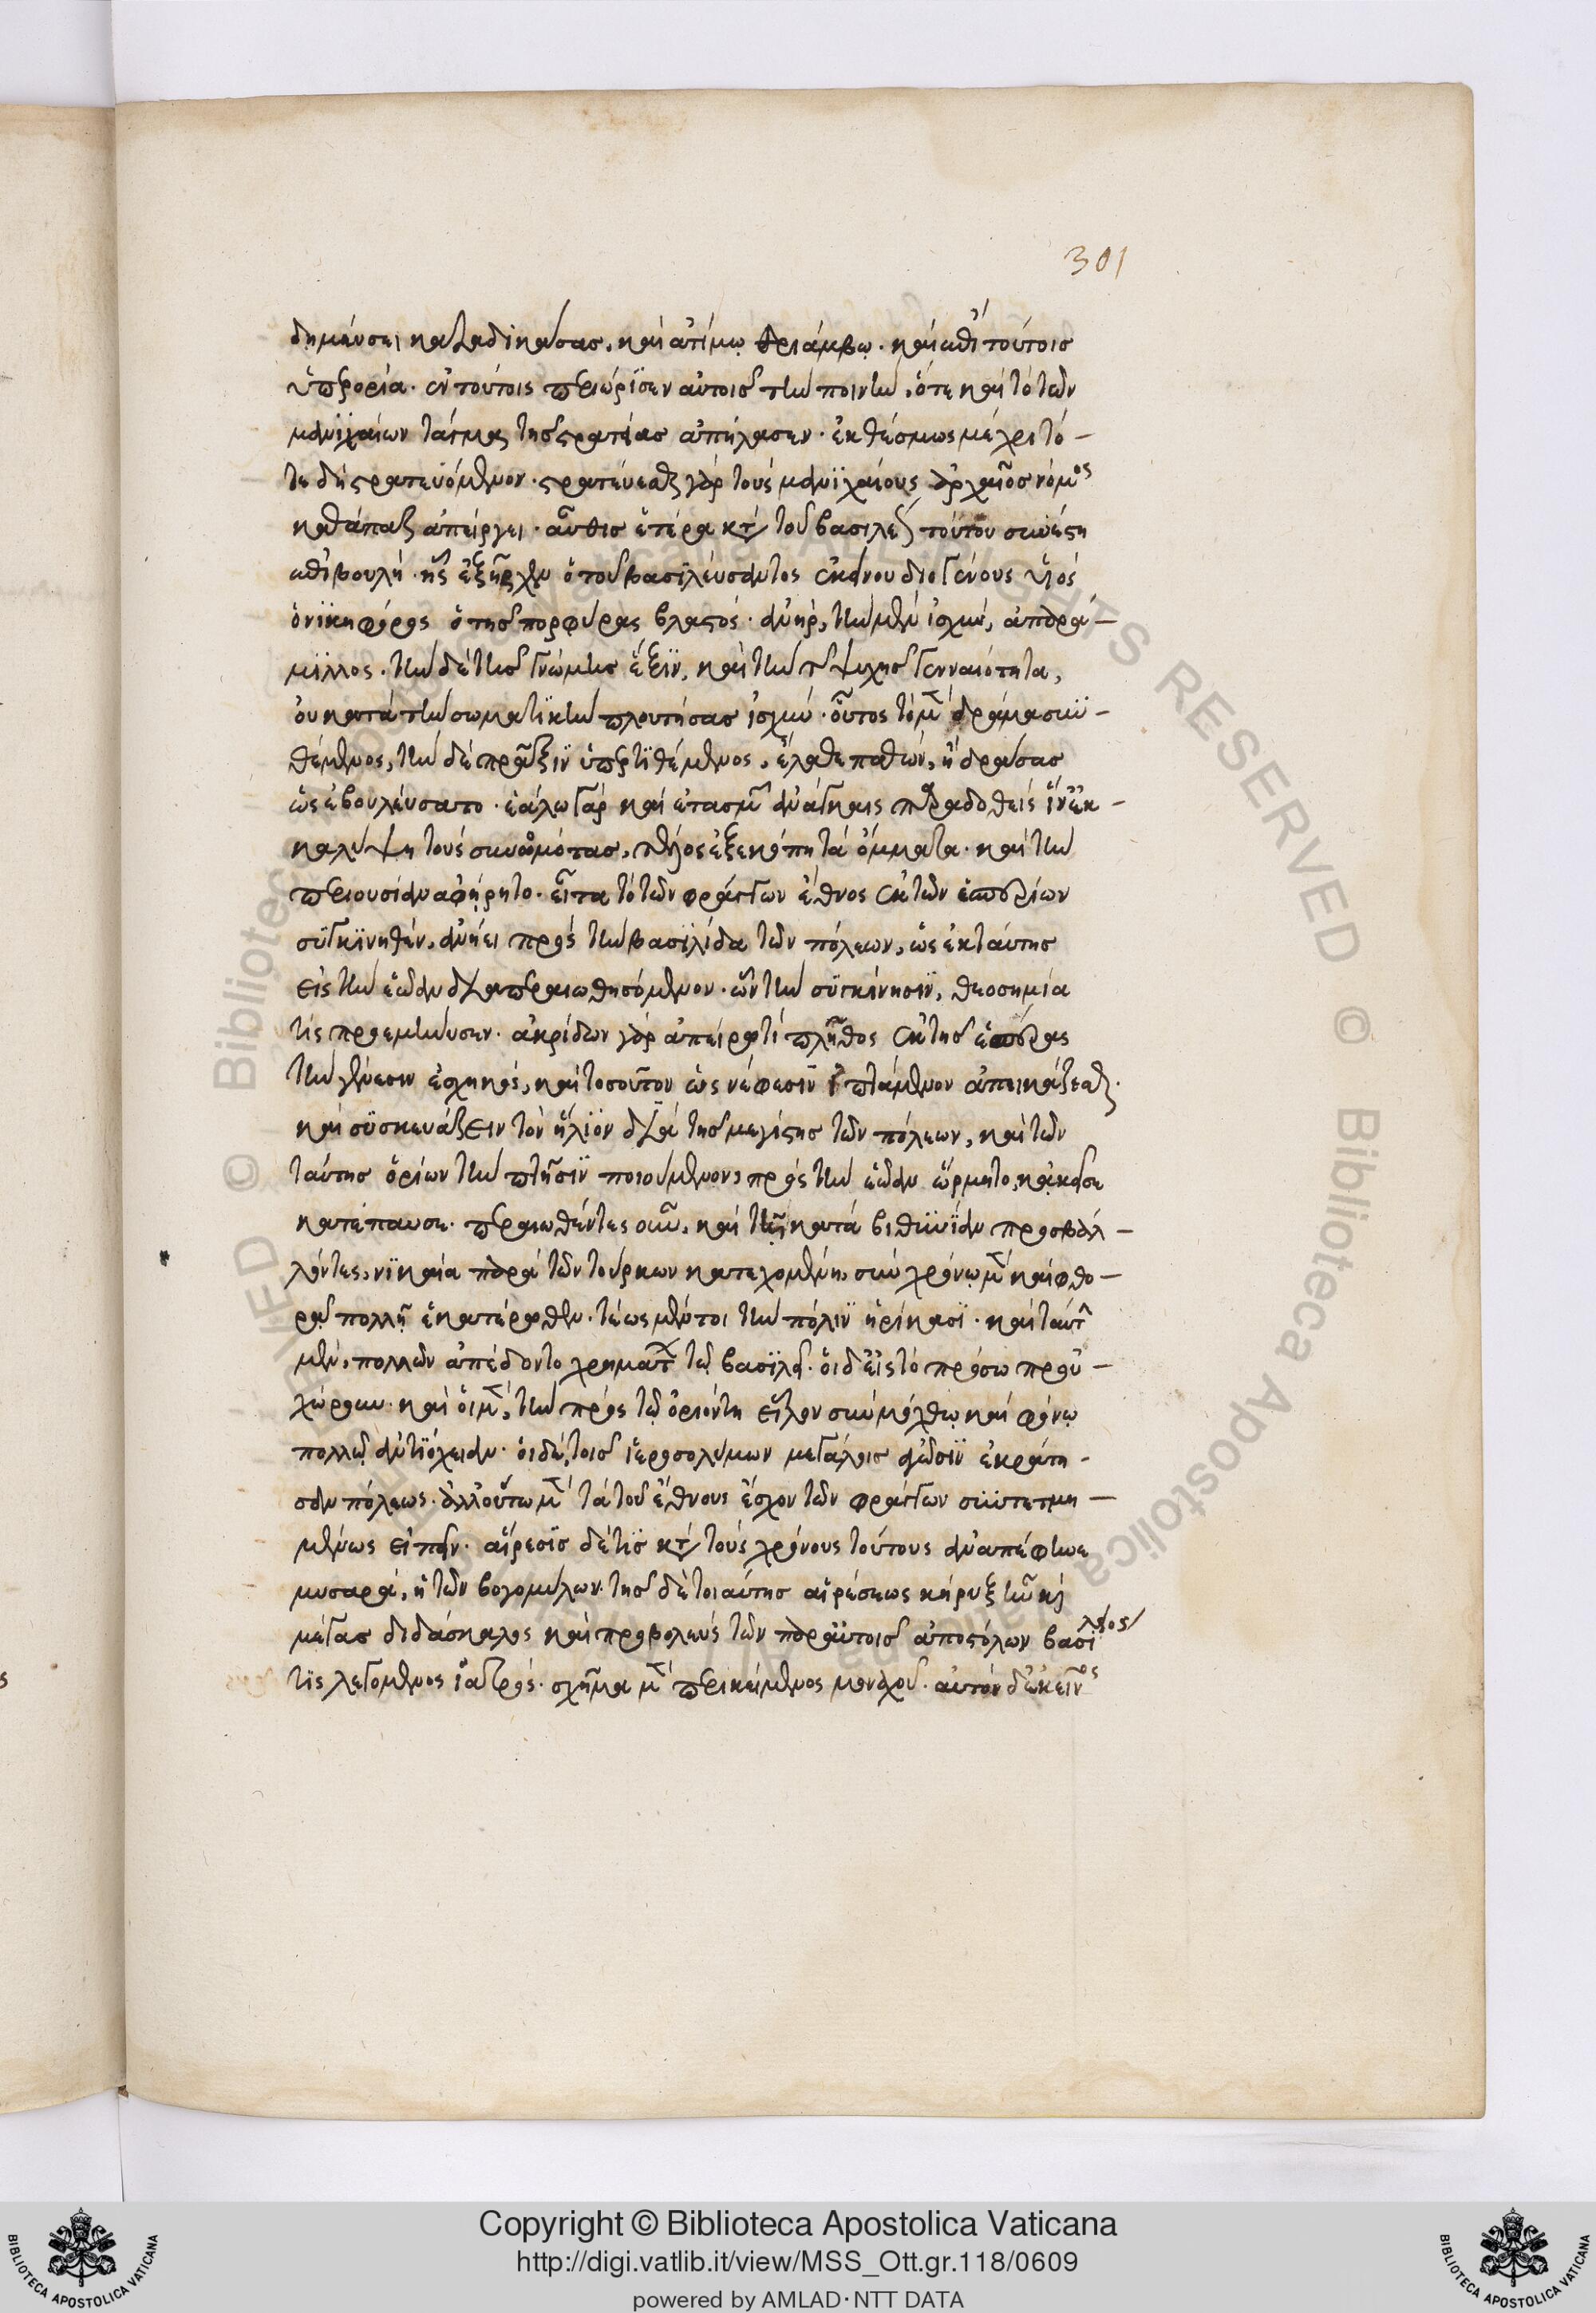 301
δημεύσει καταδικάσας, καὶ ἀτίμω θριάμβω. καὶ ἐπὶ τούτοις
ὑπερορία. ἐν τούτοις περιώρισεν αὐτοῖς τὴν ποινήν, ὅτε καὶ τὸ τῶν
μανιχαίων τάγμα τῆς στρατείας ἀπήλασεν. ἐκθέσμως μέχρι τό-
τε δὴ στρατευόμενον. στρατεύεσθαι γὰρ τοὺς μανιχαίους ἀρχαῖος νόμος
καθάπαξ ἀπείργει. αὖθις ἑτέρα κατὰ τοῦ βασιλέως τούτου συνέστη
ἐπιβουλή. ἧς ἐξῆρχεν ὁ τοῦ βασιλεύσαντος ἐκείνου διογένους υἱός
ὁ νικηφόρος ὁ τῆς πορφύρας βλαστός. ἀνήρ, τὴν μὲν ἰσχύν, ἀπαρά-
μιλλος. τὴν δὲ τῆς γνώμης ἕξιν, καὶ τὴν τῆς ψυχῆς γενναιότητα,
οὐ κατὰ τὴν σωματικὴν πλουτήσας ἰσχύν. οὗτος τὸ μὲν δράμα συν-
θέμενος, τὴν δὲ πρᾶξιν ὑπερτιθέμενος, ἔλαθε παθών, ἢ δράσας
ὡς ἐβουλεύσατο. ἑάλω γὰρ καὶ ἐτασμῶν ἀνάγκαις παραδοθεὶς ἵν' ἐκ-
καλύψῃ τοὺς συνωμότας, τέλος ἐξεκόπη τὰ ὄμματα. καὶ τὴν
περιουσίαν ἀφήρητο. εἶτα τὸ τῶν φράγγων ἔθνος ἐκ τῶν ἑσπερίων
συγκινηθέν, ἀνήει πρὸς τὴν βασιλίδα τῶν πόλεων, ὡς ἐκ ταύτης
εἰς τὴν ἑώαν διαπεραιωθησόμενον. ὧν τὴν συγκίνησιν, θεοσημία
τις προεμήνυσεν. ἀκρίδων γὰρ ἄπειρόν τι πλῆθος ἐκ τῆς ἑσπέρας
τὴν γένεσιν ἐσχηκός, καὶ τοσοῦτον ὡς νέφεσιν ἱπτάμενον ἀπεικάζεσθαι.
καὶ συσκευάζειν τὸν ἥλιον διὰ τῆς μεγίστης τῶν πόλεων, καὶ τῶν
ταύτης ὁρίων τὴν πτῆσιν ποιούμενον, πρὸς τὴν ἑώαν ὥρμητο, κἀκεῖσε
κατέπαυσε. περαιωθέντες οὖν, καὶ τῇ κατὰ βιθυνίαν προσβαλ-
λόντες, νικαία παρὰ τῶν τούρκων κατεχομένη, σὺν χρόνω μὲν καὶ φθο-
ρᾷ πολλῇ ἑκατέρωθεν. τέως μέντοι τὴν πόλιν ᾑρήκασι. καὶ ταύτην
μέν, πολλῶν ἀπέδοντο χρημάτων τῷ βασιλεῖ. οἱ δ' εἰς τὸ πρόσω προὐ-
χώρουν. καὶ οἱ μὲν, τὴν πρὸς τῷ ὀρόντη εἷλον σὺν μόχθω καὶ φόνω
πολλῷ ἀντιόχειαν. οἱ δὲ, τοῖς ἱεροσολύμων μεγάλοις ἀγῶσιν ἐκράτη-
σαν πόλεως. ἀλλ' οὕτω μὲν τὰ τοῦ ἔθνους ἔσχον τῶν φράγγων συντετμη-
μένως εἰπεῖν. αἵρεσις δέ τις κατὰ τοὺς χρόνους τούτους ἀναπέφηνε
μυσαρά, ἡ τῶν βογομίλων. τῆς δὲ τοιαύτης αἱρέσεως κήρυξ ἦν καὶ
μέγας διδάσκαλος καὶ προβολεὺς τῶν παρ' αὐτοῖς ἀποστόλων βασίλειος
τις λεγόμενος ἰατρός. σχῆμα μὲν περικείμενος μοναχοῦ. αὐτὸν δ' ἐκεῖνος
Copyright © Biblioteca Apostolica Vaticana
http://digi.vatlib.it/view/MSS_Ott.gr.118/0609
powered by AMLAD·NTT DATA